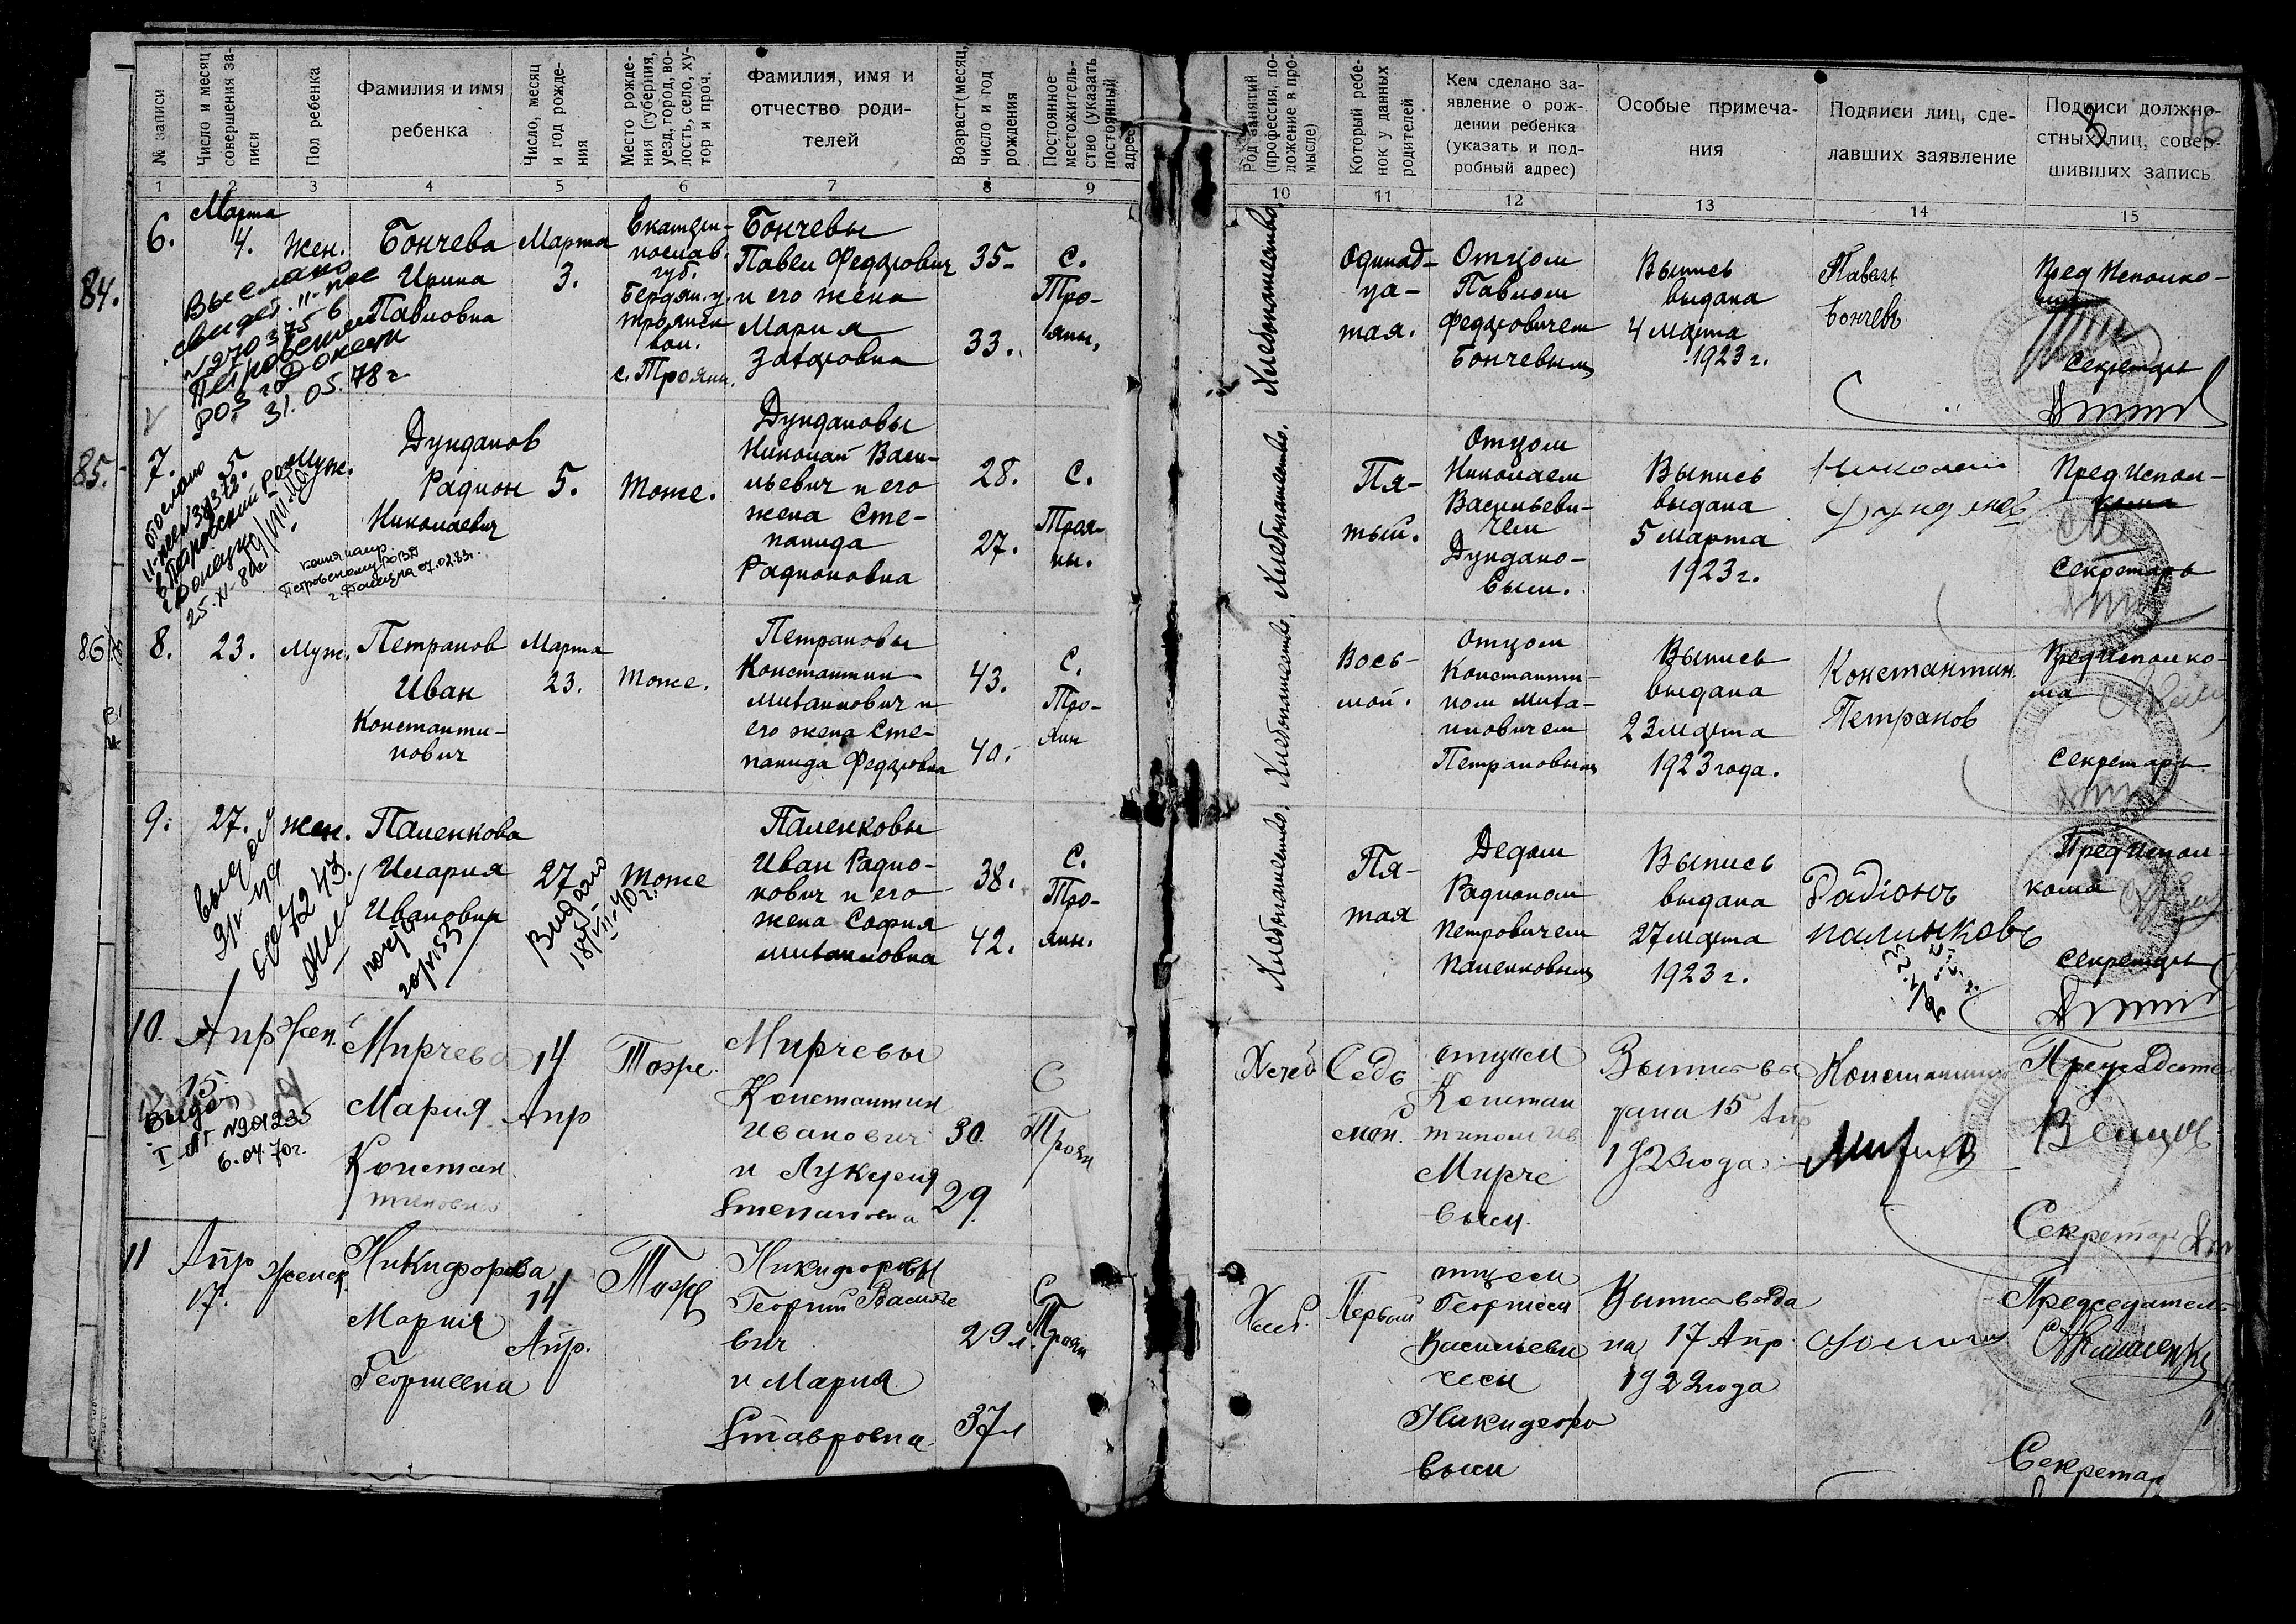 № записи
Число и месяц
совершения за-
писи
Пол ребенка
Фамилия и имя
ребенка
Число, месяц
и год рожде-
ния
Место рожде-
ния (губерния,
уезд, город, во-
лость, село, ху-
тор и проч.
Фамилия, имя и
отчество роди-
телей
Возраст (месяц,
число и год
рождения
Постоянное
местожитель-
ство (указать
постоянный
адрес)
Род занятий
(профессия, по-
ложение в про-
мысле)
Который ребе-
нок у данных
родителей
Кем сделано за-
явление о рож-
дении ребенка
(указать и под-
робный адрес)
Особые примеча-
ния
Подписи лиц, сде-
лавших заявление
Подписи должно-
стных лиц, совер-
шивших запись
16
1 2 3 4 5 6 7 8 9 10 11 12 13 14 15
84.
6.
Марта
4.
Жен.
Бончева
Ирина
Павловна
Марта
3.
Екатери-
нослав.
губ.
Бердян. у.
Троянск
вол.
с. Трояны.
Бончевы
Павел Федорович
и его жена
Мария
Захаровна
35-
33.
с.
Тро-
яны.
Хлебопашество.
Одинад-
ца-
тая.
Отцом
Павлом
Федоровичем
Бончевым
Выпись
выдана
4 марта
1923 г.
Павел
Бончев
Пред Исполко-
ма
Секретарь
Выслано
свидет. II-пе
№270375 в
Петровский
РОЗ г. Донецк
31.05.78 г.
85.
7.
5.
Муж.
Дунданов
Радион
Николаевич
5.
тоже.
Дундановы
Николай Васи-
льевич и его
жена Сте-
панида
Радионовна
28.
27.
с.
Троя-
ны.
Хлебопашество.
Пя-
тый.
Отцом
Николаем
Васильеви-
чем
Дундано-
вым.
Выпись
выдана
5 марта
1923 г.
Николай
Пред Испол-
кома
Секретарь
копия напр.
Петровскому РОВД
г. Донецка 07.02.83г.
86
8.
23.
Муж.
Петранов
Иван
Константи-
нович
Марта
23.
тоже.
Петрановы
Константин
Михайлович и
его жена Сте-
панида Федоровна
43.
40.
с.
Тро-
ян
Хлебопашество.
Вось-
мой.
Отцом
Константи-
ном Миха-
иловичем
Петрановым
Выпись
выдана
23 марта
1923 года.
Константин
Петранов
Пред Исполко-
ма
Секретарь
9.
27.
жен.
Паленкова
Илария
Ивановна
27
тоже
Паленковы
Иван Радио-
нович и его
жена София
Михайловна
38.
42.
с.
Тро-
яны.
Хлебопашество.
Пя-
тая
Дедом
Радионом
Петровичем
Паленковым
Выпись
выдана
27 марта
1923 г.
Радіонъ
палинковъ
Пред Испол-
кома
Секретарь
Видано
10.
Апр
15.
Жен.
Мирчева
Мария
Констан
тиновна
14
Апр
Тоже.
Мирчевы
Константин
Иванович
и Лукерия
Степановна
30.
29.
С
Троян
Хлеб
Седь
мой.
отцем
Констан
тином Ив
Мирче
вым.
Выпись вы
дана 15 Апр
1923 года
Константин
Председатель
Секретар
Выдан
I АГ №901235
6.04.70г.
11
Апр
17.
Женск.
Никифорова
Мария
Георгиевна
14
Апр.
Тоже
Никифоровы
Георгий Василье
вич
и Мария
Ставровна
29 л.
37 л
С
Троян
Хлеб.
Первый
отцем
Георгием
Васильеви
чем
Никифоро
вым
Выпись выда
на 17 Апр.
1922 года
Председатель
Секретар